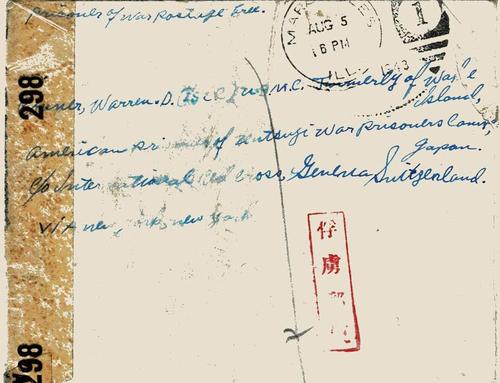 Prisoner of War Postage Free.
AUG 5
6 PM
1943
1
298
Warren. D. U.S.M.C. Formerly of Wake
Island,
American Prisoner of Zentsuji War Prisoners Camp,
Japan.
c/o International Red Cross, Geneva Switzerland.
Via New York, New York
俘
虜
298